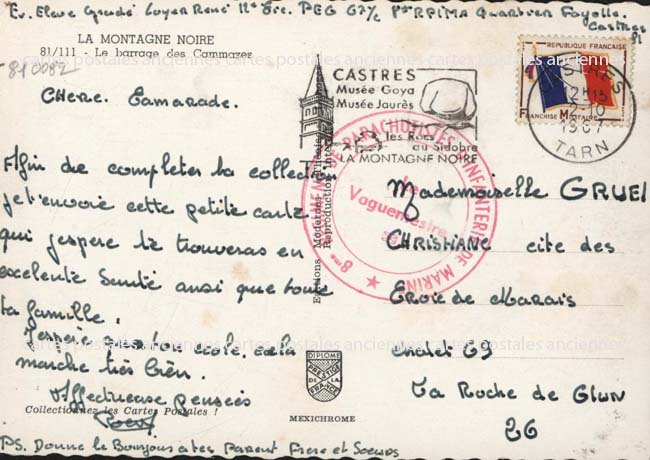 Ev. Eleve Gradé Loyer René 11e Bie. PEG 67/2 8e RPIMA Quartier Fayolle.
Castres
81
LA MONTAGNE NOIRE
81/111 - Le barrage des Cammazes
810082
CHERE. Camarade.
Afin de completer ta collection
je t'envoie cette petite carte
qui j'espere te trouveras en
excelente Santé ainsi que toute
ta famille.
J'espere que ton ecole, cela
marche très bien.
Affectueuse pensées
Collectionnez les Cartes Postales !
PS. Donne le Bonjour a tes Parent Frere et Soeurs
Editions Modernes
Reproduction Inter
DIPLOME
PRESTIGE
DE LA
FRANCE
MEXICHROME
CASTRES
Musée Goya
Musée Jaurès
les Rocs
au Sidobre
LA MONTAGNE NOIRE
REPUBLIQUE FRANÇAISE
FRANCHISE MILITAIRE
CASTRES
12H15
1967
TARN
8me REGIMENT DE PARACHUTISTES D'INFANTERIE DE MARINE
Le
Vaguemestre
Mademoiselle GRUEL
CHRISTIANE cite des
Croix de Marais
chalet 69
La Roche de Glun
26
cartes postales anciennes cartes postales anciennes cartes postales anciennes
cartes postales anciennes cartes postales anciennes cartes postales anciennes